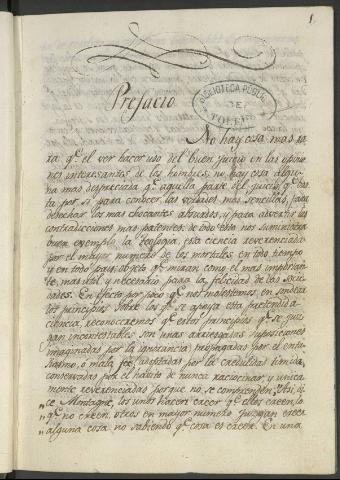 1.
Prefacio
BIBLIOTECA PUBLICA
DE
TOLEDO
No hay cosa mas ra-
ra qe. el ver hacer uso del buen juicio en las opinio-
nes interesantes a los hombres, no hay cosa algu-
na mas despreciada qe. aquella parte del juicio qe. bas-
ta por sí para conocer las verdades mas sencillas, para
desechar los mas chocantes absurdos, y para advertir las
contradicciones mas patentes: de todo esto nos suministra
buen exemplo la teologia, esta ciencia reverenciada
por el mayor numero de los mortales en todo tiempo
y en todo pais, objeto qe. miran como el mas importan-
te, mas util, y necesario para la felicidad de las socie-
dades. En efecto por poco qe. nos molestemos en sondear
los principios sobre los qe. se apoya esta pretendida
ciencia, reconoceremos qe. estos principios qe. se juz-
gan incontestables son unas arriesgadas suposiciones
imaginadas por la ignorancia, propagadas por el entu-
siasmo, o mala fee, adoptadas por la credulidad timida
conservadas por el habito de nunca raciocinar, y unica-
mente reverenciadas porque no se comprenden. Asi di-
ce Montagne, los unos hacen creer qe. ellos creen, lo
qe. no creen, otros en mayor numero juzgan creer
alguna cosa no sabiendo qe. cosa es creer. En una